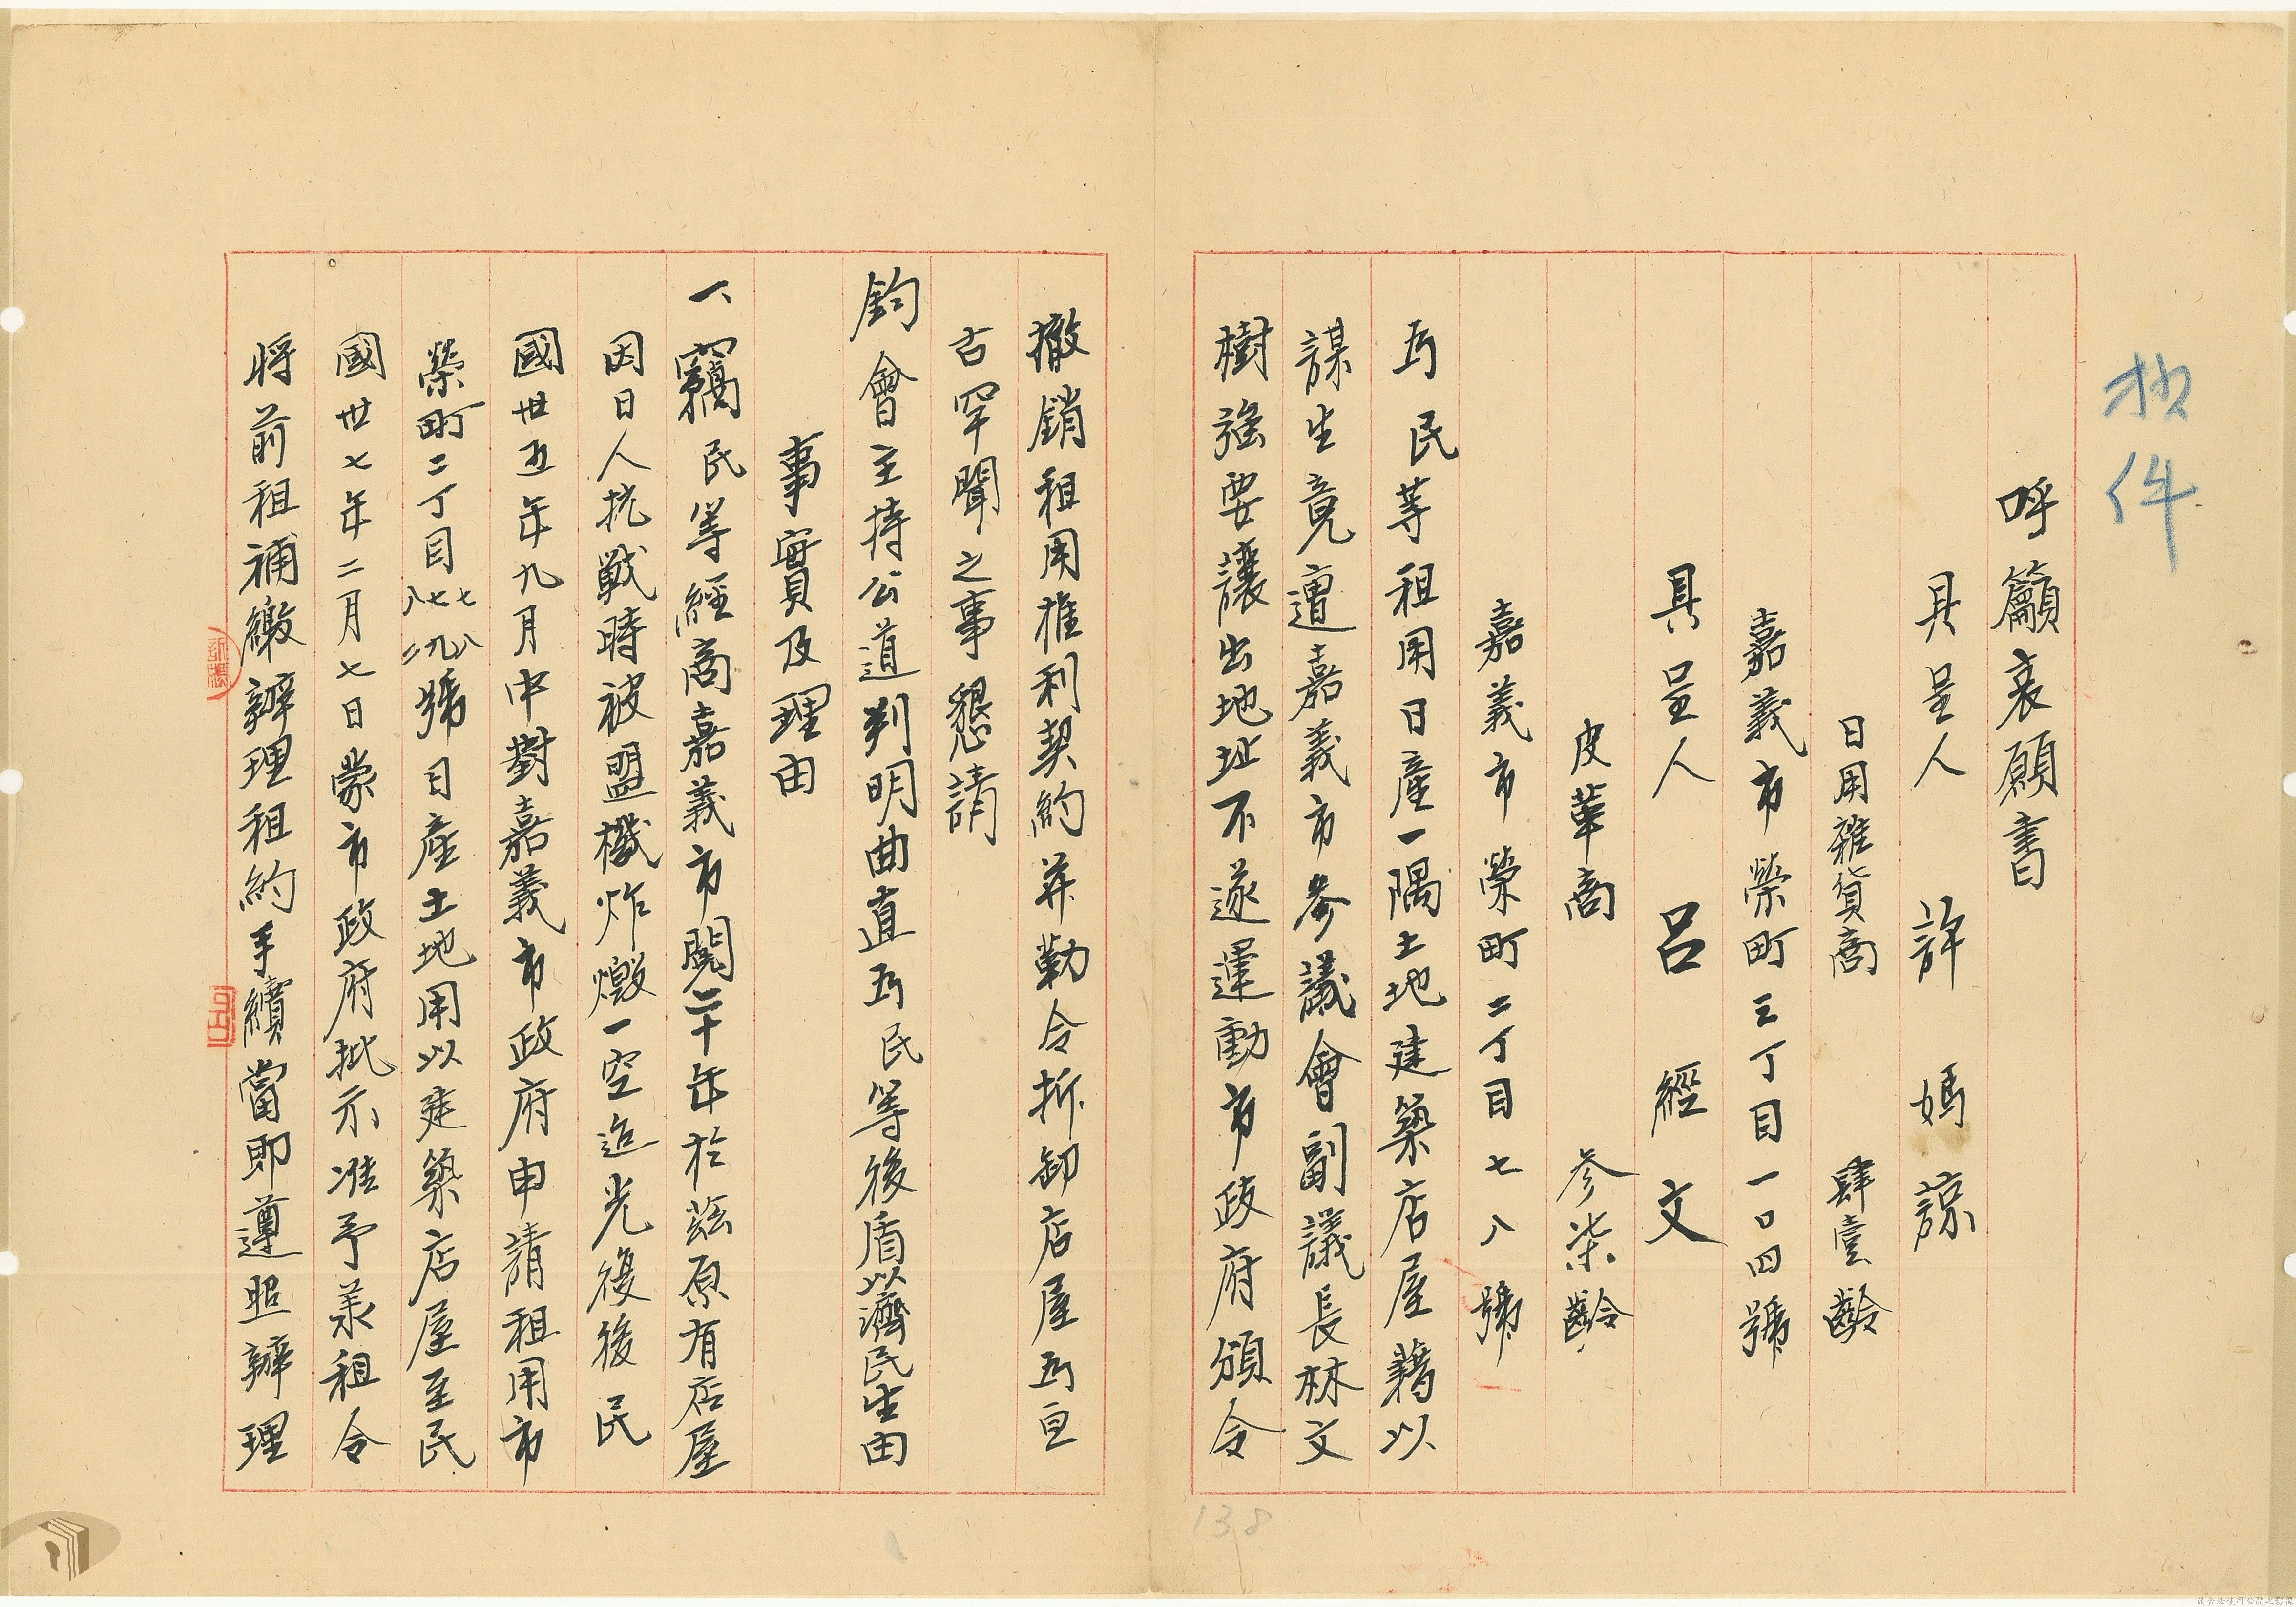 抄件
呼籲哀願書
具呈人 許媽諒
日用雜貨商 肆壹齡
嘉義市榮町三丁目一〇四號
具呈人 呂經文
皮革商 参柒齡
嘉義市榮町二丁目七八號
為民等租用日產一隅土地建築店屋藉以
謀生竟遭嘉義市參議會副議長林文
樹強要讓出地址不遂運動市政府頒令
撤銷租用推利契約並勒令拆卸店屋為亘
古罕聞之事懇請
鈞會主持公道判明曲直為民等後盾以濟民生由
事實及理由
一、竊民等經商嘉義市閱二十年於茲原有店屋
因日人抗戰時被盟機炸燬一空迨光復後民
國卅五年九月中對嘉義市政府申請租用市
榮町二丁目七八七九八二號日產土地用以建築店屋至民
國卅七年二月七日蒙市政府批示准予承租令
將前租補繳辦理租約手續當即遵照辦理
138
請合法使用公開之影像